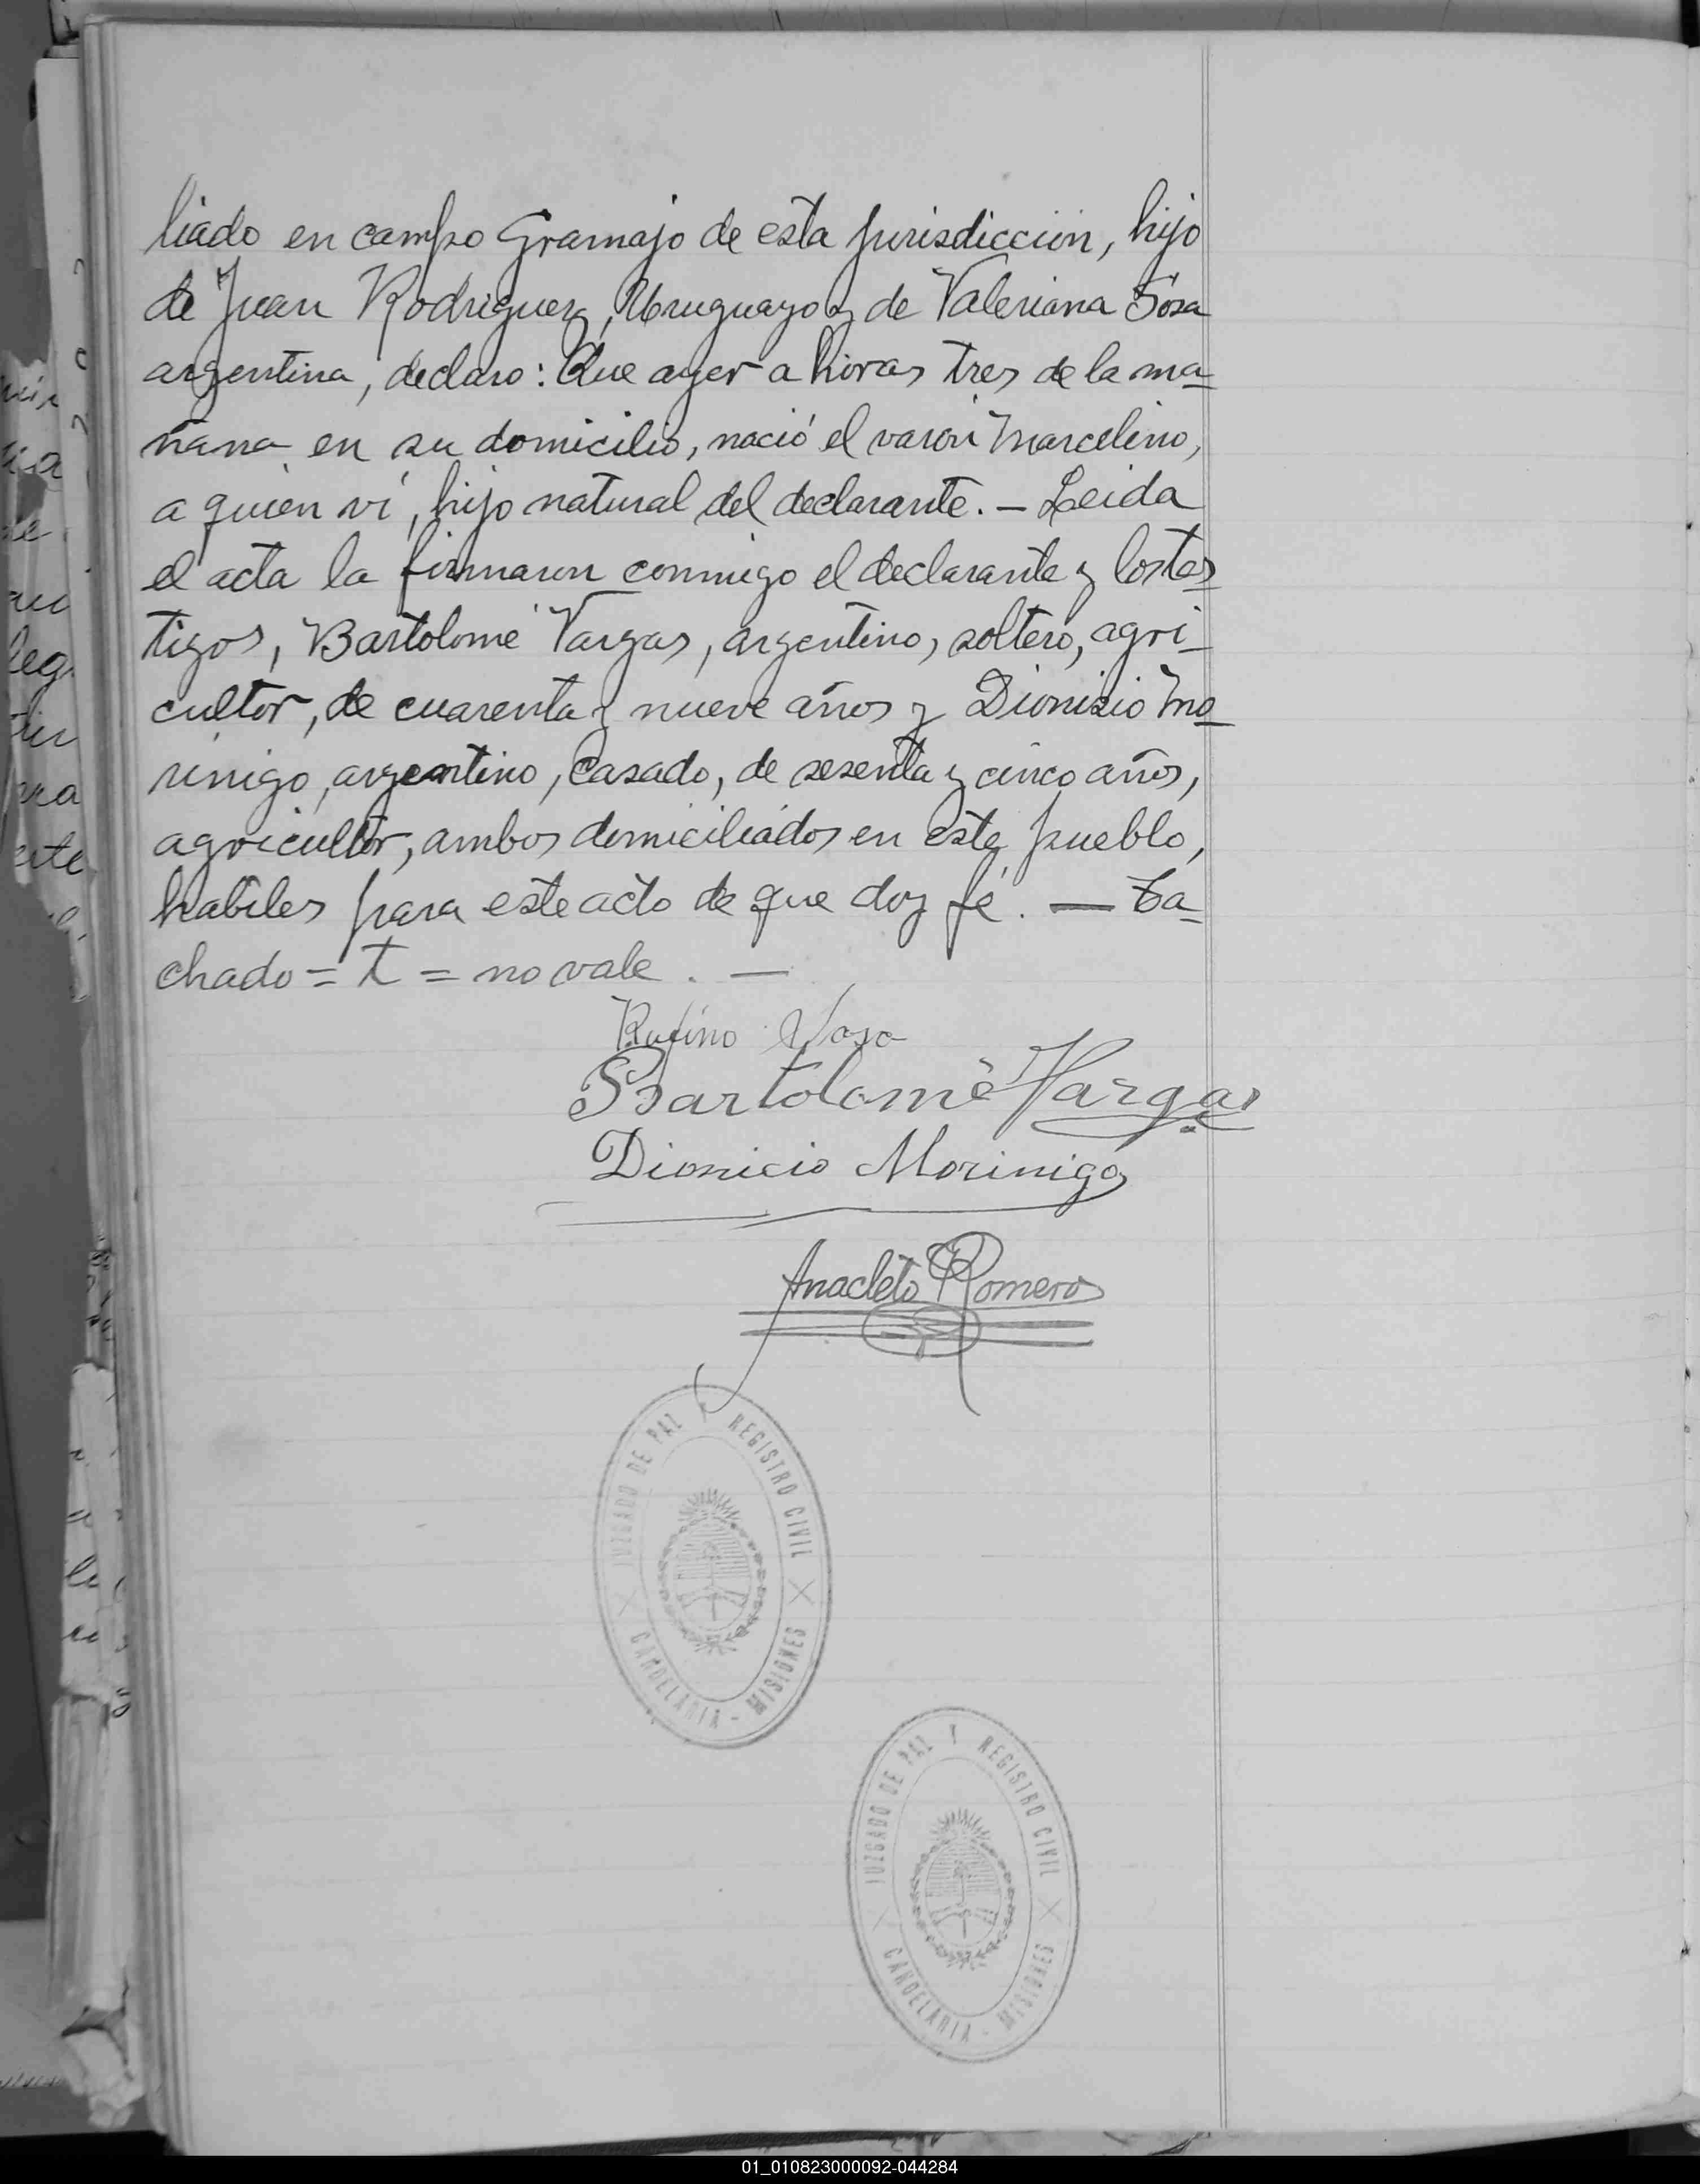 liado en campo Gramajo de esta jurisdiccion, hijo
de Juan Rodriguez, Uruguayo y de Valeriana Sosa
argentina, declaro: Que ayer a horas tres de la ma-
ñana en su domicilio, nació el varón Marcelino,
a quien ví, hijo natural del declarante. — Leida
el acta la firmaron conmigo el declarante y los tes-
tigos, Bartolomé Vargas, argentino, soltero, agri-
cultor, de cuarenta y nueve años y Dionisio Mo-
rinigo, argentino, casado, de sesenta y cinco años,
agricultor, ambos domiciliados en este pueblo,
habiles para este acto de que doy fé. — Ta-
chado = t = no vale. —
Rufino Sosa
Bartolomé Vargas
Dionicio Morinigo
Anacleto Romero
JUZGADO DE PAZ Y REGISTRO CIVIL
CANDELARIA - MISIONES
JUZGADO DE PAZ Y REGISTRO CIVIL
CANDELARIA - MISIONES
01_010823000092-044284